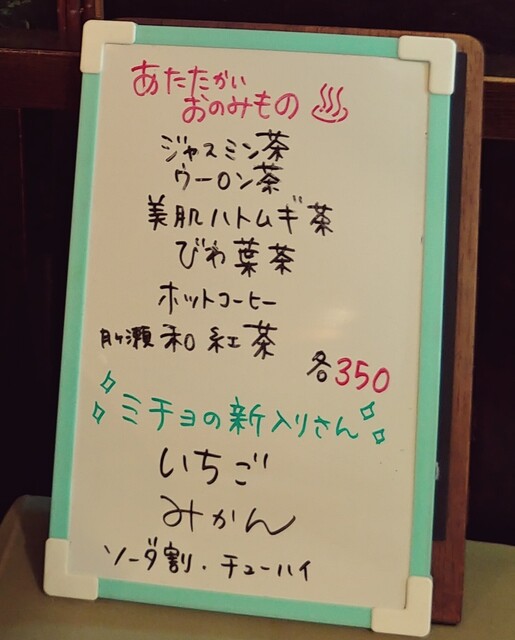 あたたかい
おのみもの ♨
ジャスミン茶
ウーロン茶
美肌ハトムギ茶
びわ葉茶
ホットコーヒー
月ヶ瀬 和紅茶
各350
ミチョの新入りさん
いちご
みかん
ソーダ割・チューハイ